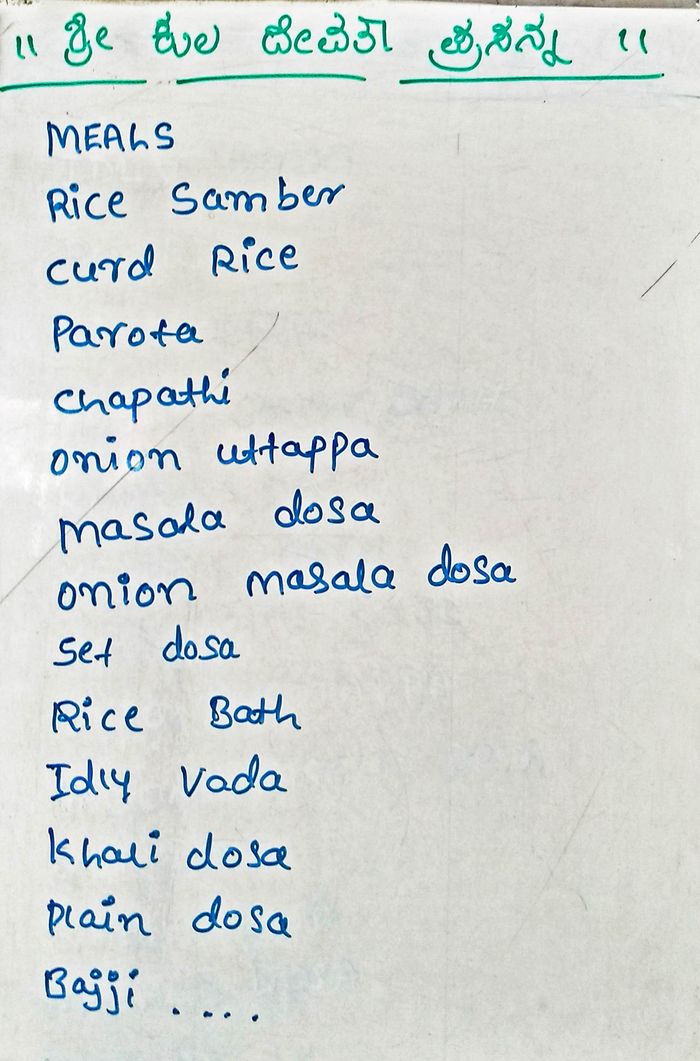 ॥ ಶ್ರೀ ಕುಲ ದೇವತಾ ಪ್ರಸನ್ನ ॥
MEALS
Rice Samber
curd Rice
Parota
chapathi
onion uttappa
masala dosa
onion masala dosa
set dosa
Rice Bath
Idly Vada
Khali dosa
Plain dosa
Bajji ....